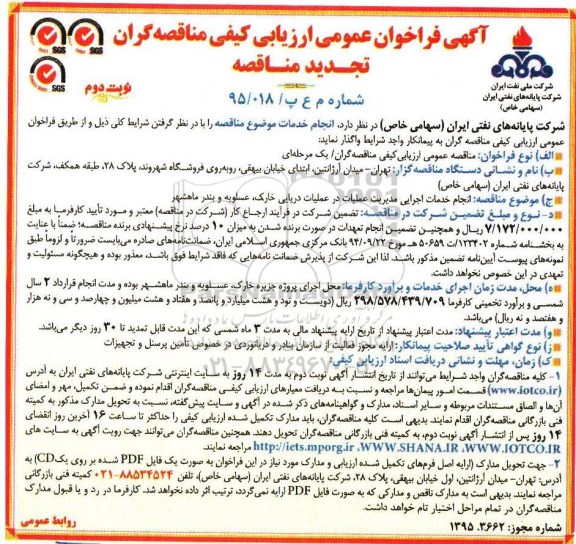 آگهی فراخوان عمومی ارزیابی کیفی مناقصه‌گران
تجدید مناقصه
شماره م ع پ/ ۹۵/۰۱۸
نوبت دوم
شرکت ملی نفت ایران
شرکت پایانه‌های نفتی ایران
(سهامی خاص)
SGS
SGS
SGS
شرکت پایانه‌های نفتی ایران (سهامی خاص) در نظر دارد، انجام خدمات موضوع مناقصه را با در نظر گرفتن شرایط کلی ذیل و از طریق فراخوان
عمومی ارزیابی کیفی مناقصه گران به پیمانکار واجد شرایط واگذار نماید:
الف) نوع فراخوان: مناقصه عمومی ارزیابی‌کیفی مناقصه‌گران/ یک مرحله‌ای
ب) نام و نشانی دستگاه مناقصه‌گزار: تهران-میدان آرژانتین، ابتدای خیابان بیهقی، روبه‌روی فروشگاه شهروند، پلاک ۲۸، طبقه همکف، شرکت
پایانه‌های نفتی ایران (سهامی خاص)
ج) موضوع مناقصه: انجام خدمات اجرایی مدیریت عملیات در عملیات دریایی خارک، عسلویه و بندر ماهشهر
د- نوع و مبلغ تضمین شرکت در مناقصه: تضمین شرکت در فرآیند ارجاع کار (شرکت در مناقصه) معتبر و مورد تأیید کارفرما به مبلغ
۷/۱۷۲/۰۰۰/۰۰۰ ریال و همچنین تضمین انجام تعهدات در صورت برنده شدن به میزان ۱۰ درصد نرخ پیشنهادی برنده مناقصه؛ ضمناً با عنایت
به بخشنامه شماره ۱۲۳۴۰۲/ت ۵۰۶۵۹ ه مورخ ۹۴/۰۹/۲۲ بانک مرکزی جمهوری اسلامی ایران، ضمانت‌نامه‌های صادره می‌بایست ضرورتاً و لزوماً طبق
نمونه‌های پیوست آیین‌نامه تضمین مذکور باشد. لذا این شرکت از پذیرش ضمانت نامه‌هایی که فاقد شرایط فوق باشد، معذور بوده و هیچگونه مسئولیت و
تعهدی در این خصوص نخواهد داشت.
ه) محل، مدت زمان اجرای خدمات و برآورد کارفرما: محل اجرای پروژه جزیره خارک، عسلویه و بندر ماهشهر بوده و مدت انجام قرارداد ۲ سال
شمسی و برآورد تخمینی کارفرما ۲۹۸/۵۷۸/۴۳۹/۷۰۹ ریال (دویست و نود و هشت میلیارد و پانصد و هفتاد و هشت میلیون و چهارصد و سی و نه هزار
و هفتصد و نه ریال) می‌باشد.
و) مدت اعتبار پیشنهاد: مدت اعتبار پیشنهاد از تاریخ ارایه پیشنهاد مالی به مدت ۳ ماه شمسی که این مدت قابل تمدید تا ۳۰ روز دیگر می‌باشد.
ز) نوع گواهی تأیید صلاحیت پیمانکار: ارایه مجوز فعالیت از سازمان بنادر و دریانوردی در خصوص تأمین پرسنل و تجهیزات
ک) زمان، مهلت و نشانی دریافت اسناد ارزیابی کیفی:
۱- کلیه مناقصه‌گران واجد شرایط می‌توانند از تاریخ انتشار آگهی نوبت دوم به مدت ۱۴ روز به سایت اینترنتی شرکت پایانه‌های نفتی ایران به آدرس
(www.iotco.ir) قسمت امور پیمان‌ها مراجعه و نسبت به دریافت معیارهای ارزیابی کیفی مناقصه‌گران اقدام نموده و ضمن تکمیل، مهر و امضای
آن‌ها و الصاق مستندات مربوطه و سایر اسناد، مدارک و گواهینامه‌های ذکر شده در آگهی و سایت پیش‌گفته، نسبت به تحویل مدارک مذکور به کمیته
فنی بازرگانی مناقصه‌گران اقدام نمایند. بدیهی است کلیه مناقصه‌گران، باید مدارک تکمیل شده ارزیابی کیفی را حداکثر تا ساعت ۱۶ آخرین روز انقضای
۱۴ روز پس از انتشار آگهی نوبت دوم، به کمیته فنی بازرگانی مناقصه‌گران تحویل دهند همچنین مناقصه‌گران می‌توانند جهت رویت آگهی به سایت های
WWW.IOTCO.IR ،WWW.SHANA.IR ،http://iets.mporg.ir مراجعه نمایند.
۲- جهت تحویل مدارک (ارایه اصل فرم‌های تکمیل شده ارزیابی و مدارک مورد نیاز در این فراخوان به صورت یک فایل PDF شده بر روی یک CD) به
آدرس: تهران- میدان آرژانتین، اول خیابان بیهقی، پلاک ۲۸، شرکت پایانه‌های نفتی ایران (سهامی خاص)، تلفن ۰۲۱-۸۸۵۳۴۵۲۴ کمیته فنی بازرگانی
مراجعه نمایند. بدیهی است به مدارک ناقص و مدارکی که به صورت فایل PDF ارایه نمی‌گردد، ترتیب اثر داده نخواهد شد. کارفرما در رد و یا قبول مدارک
مناقصه‌گران در تمام مراحل اختیار تام خواهد داشت.
شماره مجوز: ۱۳۹۵.۳۶۶۲
روابط عمومی
۰۲۱-۸۸۳۴۹۶۷۰